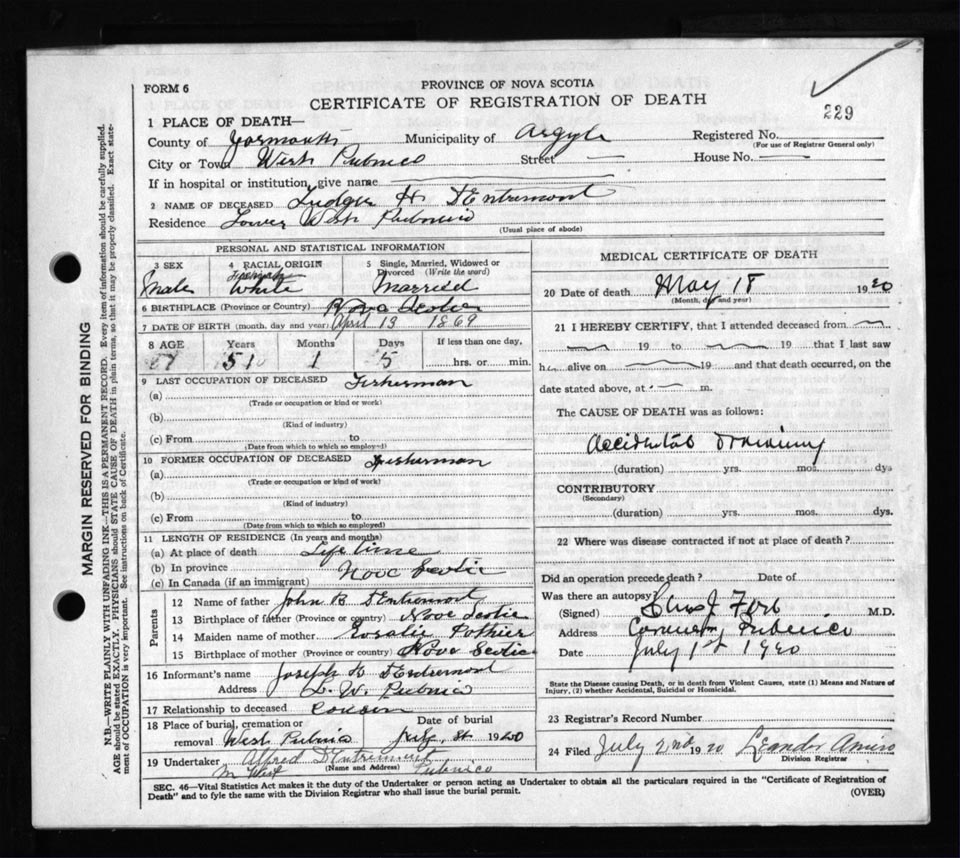 FORM 6
PROVINCE OF NOVA SCOTIA
CERTIFICATE OF REGISTRATION OF DEATH
229
1 PLACE OF DEATH—
County of Yarmouth Municipality of Argyle Registered No.
(For use of Registrar General only)
City or Town West Pubnico Street — House No. —
If in hospital or institution, give name
2 NAME OF DECEASED Ludger H D'Entremont
Residence Lower West Pubnico
(Usual place of abode)
PERSONAL AND STATISTICAL INFORMATION
3 SEX 4 RACIAL ORIGIN 5 Single, Married, Widowed or Divorced (Write the word)
Male French White Married
6 BIRTHPLACE (Province or Country) Nova Scotia
7 DATE OF BIRTH (month, day and year) April 13 1869
8 AGE Years Months Days If less than one day,
51 1 5 hrs. or min.
9 LAST OCCUPATION OF DECEASED Fisherman
(a)
(Trade or occupation or kind or work)
(b)
(Kind of industry)
(c) From to
(Date from which to which so employed)
10 FORMER OCCUPATION OF DECEASED Fisherman
(a)
(Trade or occupation or kind of work)
(b)
(Kind of industry)
(c) From to
(Date from which to which so employed)
11 LENGTH OF RESIDENCE (In years and months)
(a) At place of death Life time
(b) In province Nova Scotia
(c) In Canada (if an immigrant)
Parents
12 Name of father John B D'Entremont
13 Birthplace of father (Province or country) Nova Scotia
14 Maiden name of mother Rosalie Pothier
15 Birthplace of mother (Province or country) Nova Scotia
16 Informant's name Joseph D'Entremont
Address L. W. Pubnico
17 Relationship to deceased Cousin
18 Place of burial, cremation or Date of burial
removal West Pubnico July 1920
19 Undertaker Alfred D'Entremont
(Name and Address)
M West Pubnico
MEDICAL CERTIFICATE OF DEATH
20 Date of death May 18 1920
(Month, day and year)
21 I HEREBY CERTIFY, that I attended deceased from
19 to 19 that I last saw
h alive on 19 and that death occurred, on the
date stated above, at — m.
The CAUSE OF DEATH was as follows:
Accidental drowning
(duration) yrs. mos. dys
CONTRIBUTORY
(Secondary)
(duration) yrs. mos. dys.
22 Where was disease contracted if not at place of death?
Did an operation precede death? Date of
Was there an autopsy?
(Signed) M.D.
Address Pubnico
Date July 1st 1920
State the Disease causing Death, or in death from Violent Causes, state (1) Means and Nature of Injury, (2) whether Accidental, Suicidal or Homicidal.
23 Registrar's Record Number
24 Filed July 2nd 1920 Leander Amiro
Division Registrar
SEC. 46—Vital Statistics Act makes it the duty of the Undertaker or person acting as Undertaker to obtain all the particulars required in the "Certificate of Registration of
Death" and to fyle the same with the Division Registrar who shall issue the burial permit. (OVER)
MARGIN RESERVED FOR BINDING
N.B.—WRITE PLAINLY WITH UNFADING INK—THIS IS A PERMANENT RECORD. Every item of information should be carefully supplied.
AGE should be stated EXACTLY. PHYSICIANS should STATE CAUSE OF DEATH in plain terms, so that it may be properly classified. Exact statement of OCCUPATION is very important. See instructions on back of Certificate.